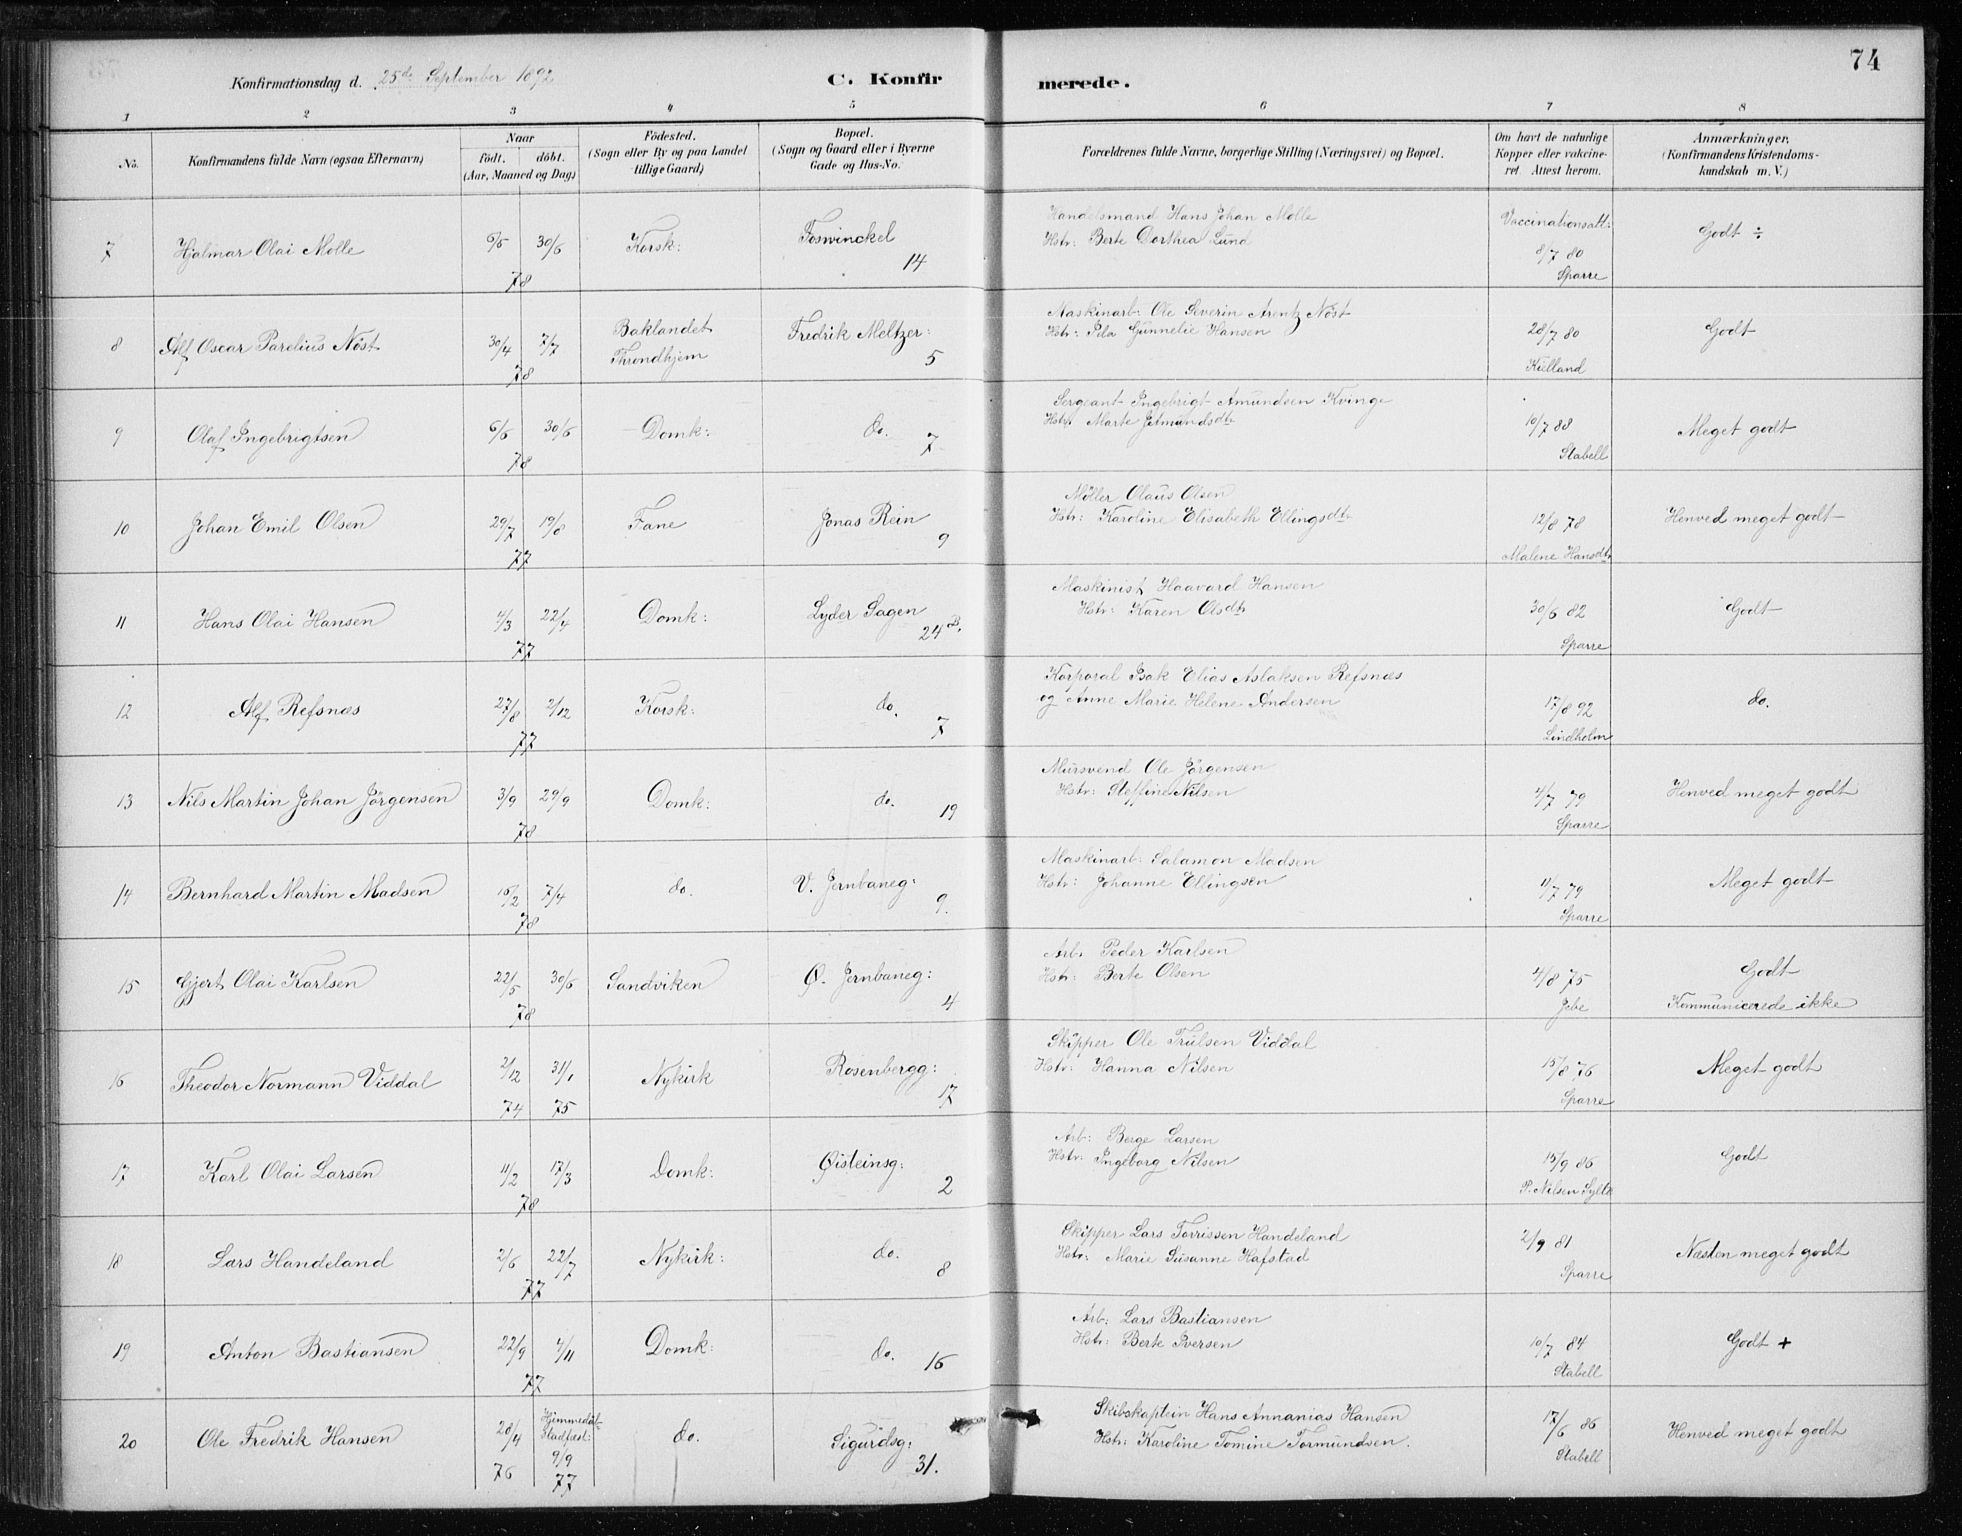 74
Konfirmationsdag d. 25de September 1892
C. Konfirmerede.
1 2 3 4 5 6 7 8
No.
Konfirmandens fulde Navn (ogsaa Efternavn)
Naar
født. døbt.
(Aar, Maaned og Dag)
Fødested.
(Sogn eller By og paa Landet
tillige Gaard)
Bopæl.
(Sogn og Gaard eller i Byerne
Gade og Hus-No.
Forældrenes fulde Navne, borgerlige Stilling (Næringsvei) og Bopæl.
Om havt de naturlige
Kopper eller vakcine-
ret. Attest herom.
Anmærkninger.
(Konfirmandens Kristendoms-
kundskab m. V.)
7 Hjalmar Olai Molle 6/5 30/6 78 Korsk: Fosvinckel 14
Handelsmand Hans Johan Molle
Hstr: Berte Dorthea Lund
Vaccinationsatt: 8/7 80 Sparre
Godt ÷
8 Alf Oscar Parelius Nöst 30/4 7/7 78 Baklandet Throndhjem Fredrik Meltzer: 5
Maskinarb: Ole Severin Arentz Nöst
Hstr: Gunnelie Hansen
28/7 80 Kielland
Godt
9 Olaf Ingebrigtsen 6/6 30/6 78 Domk: do. 7
Sergeant Ingebrigt Amundsen Kvinge
Hstr Marte
10/7 88 Stabell
Meget godt
10 Johan Emil Olsen 29/7 19/8 77 Fane Jonas Rein 9
Møller Olaus Olsen
Hstr: Karoline Elisabeth Ellingsdtr
12/8 78 Malene Hansdtr
Henved meget godt
11 Hans Olai Hansen 4/3 22/4 77 Domk: Lyder Sagen 24 B.
Maskinist Haavard Hansen
Hstr: Karen Olsdtr
30/6 82 Sparre
Godt
12 Alf Refsnæs 27/8 2/12 77 Korsk: do. 7
Korporal Isak Elias Aslaksen Refsnæs
og Anne Marie Helene Andersen
17/8 92 Lindholm
do.
13 Nils Martin Johan Jörgensen 3/9 29/9 78 Domk: do. 19
Mursvend Ole Jörgensen
Hstr: Steffine Nilsen
4/7 79 Sparre
Henved meget godt
14 Bernhard Martin Madsen 15/2 7/4 78 do. V. Jernbaneg: 9.
Maskinarb: Salamon Madsen
Hstr: Johanne Ellingsen
11/7 79 Sparre
Meget godt
15 Gjert Olai Karlsen 22/5 30/6 78 Sandviken Ø. Jernbaneg: 4
Arb. Peder Karlsen
Hstr: Berte Olsen
4/8 75 Jebe
Godt
Kommunicerede ikke
16 Theodor Normann Viddal 2/12 74 31/1 75 Nykirk Rosenbergg: 17
Skipper Ole Trulsen Viddal
Hstr: Hanna Nilsen
15/8 76 Sparre
Meget godt
17 Karl Olai Larsen 11/2 17/3 78 Domk: Øisteinsg: 2
Arb: Berge Larsen
Hstr: Ingeborg Nilsen
15/9 86 P. Nilsen Sylte
Godt
18 Lars Handeland 2/6 22/7 77 Nykirk: do. 8
Skipper Lars Torrissen Handeland
Hstr: Marie Susanne Hafstad
2/9 81 Sparre
Næsten meget godt
19 Anton Bastiansen 22/9 4/11 77 Domk: do. 16
Arb: Lars Bastiansen
Hstr: Berte Iversen
10/7 84 Stabell
Godt +
20 Ole Fredrik Hansen 28/4 76 Hjemmedöbt Stadfæst: 9/9 77 do. Sigurdsg: 31.
Skibskaptein Hans Annanias Hansen
Hstr: Karoline Tomine Tormundsen.
17/6 86 Stabell
Henved meget godt